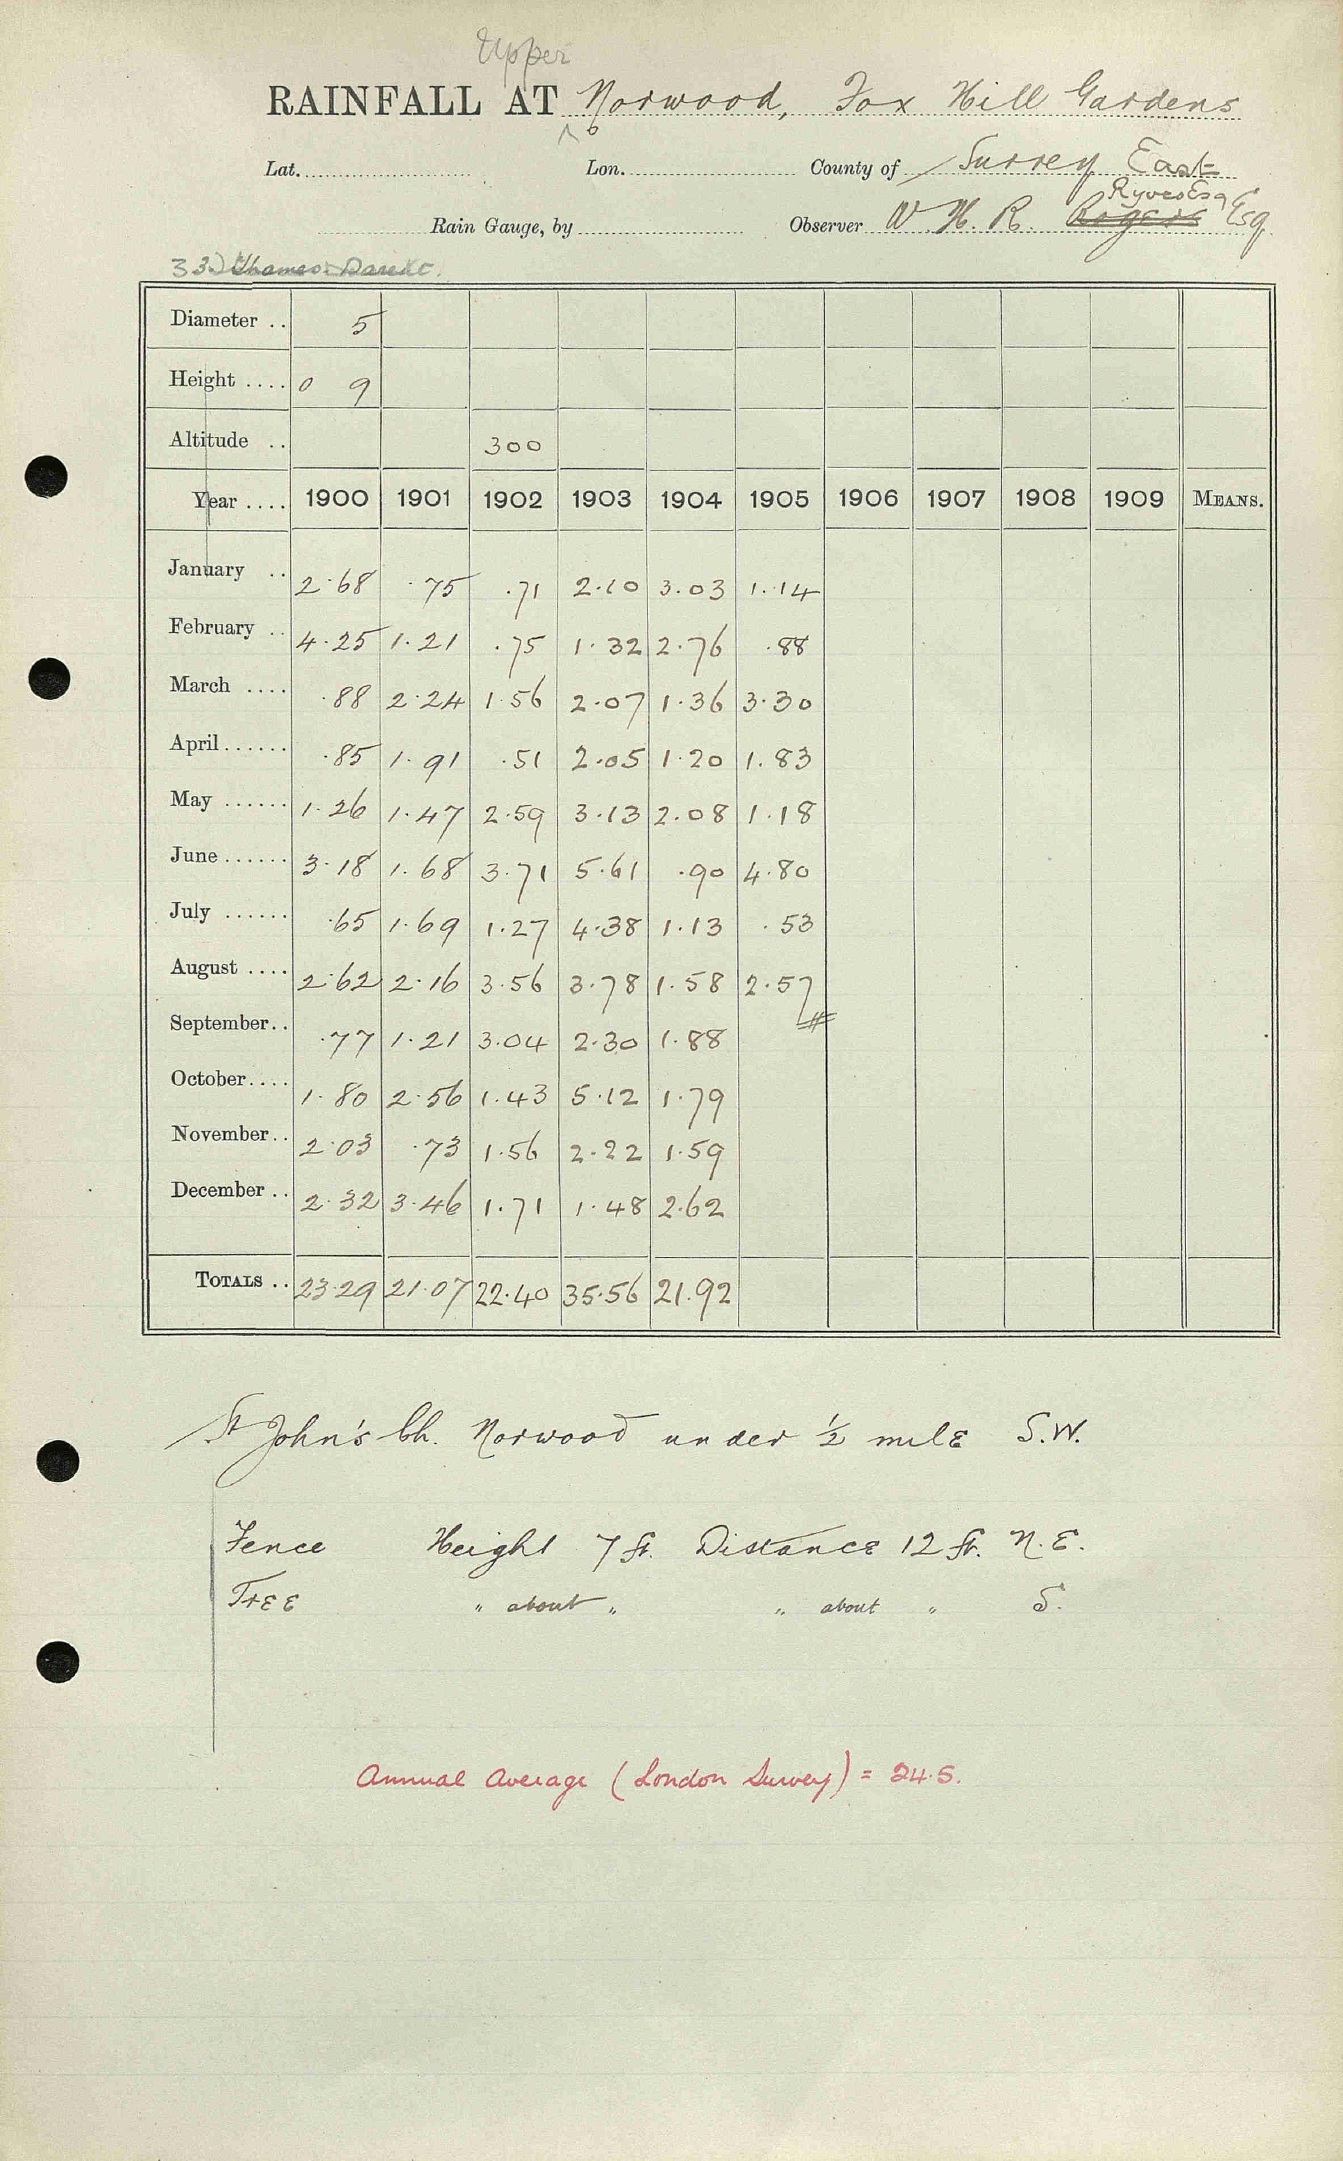 Upper
RAINFALL AT Norwood, Fox Hill Gardens
Lat. Lon. County of Surrey East
Ryves Esq
Rain Gauge, by Observer W. H. R. Rogers Esq
33) Thames Darent.
Diameter .. 5
Height .... 0 9
Altitude .. 300
Year .... 1900 1901 1902 1903 1904 1905 1906 1907 1908 1909 MEANS.
January .. 2.68 .75 .71 2.10 3.03 1.14
February .. 4.25 1.21 .75 1.32 2.76 .88
March .... .88 2.24 1.56 2.07 1.36 3.30
April ...... .85 1.91 .51 2.05 1.20 1.83
May ...... 1.26 1.47 2.59 3.13 2.08 1.18
June ...... 3.18 1.68 3.71 5.61 .90 4.80
July ...... .65 1.69 1.27 4.38 1.13 .53
August .... 2.62 2.16 3.56 3.78 1.58 2.57
September.. .77 1.21 3.04 2.30 1.88
October.... 1.80 2.56 1.43 5.12 1.79
November.. 2.03 .73 1.56 2.22 1.59
December .. 2.32 3.46 1.71 1.48 2.62
TOTALS .. 23.29 21.07 22.40 35.56 21.92
St John's Ch. Norwood under ½ mile S.W.
Fence Height 7 ft. Distance 12 ft. N.E.
Tree " about " " about " S.
Annual Average (London Survey) = 24.5.